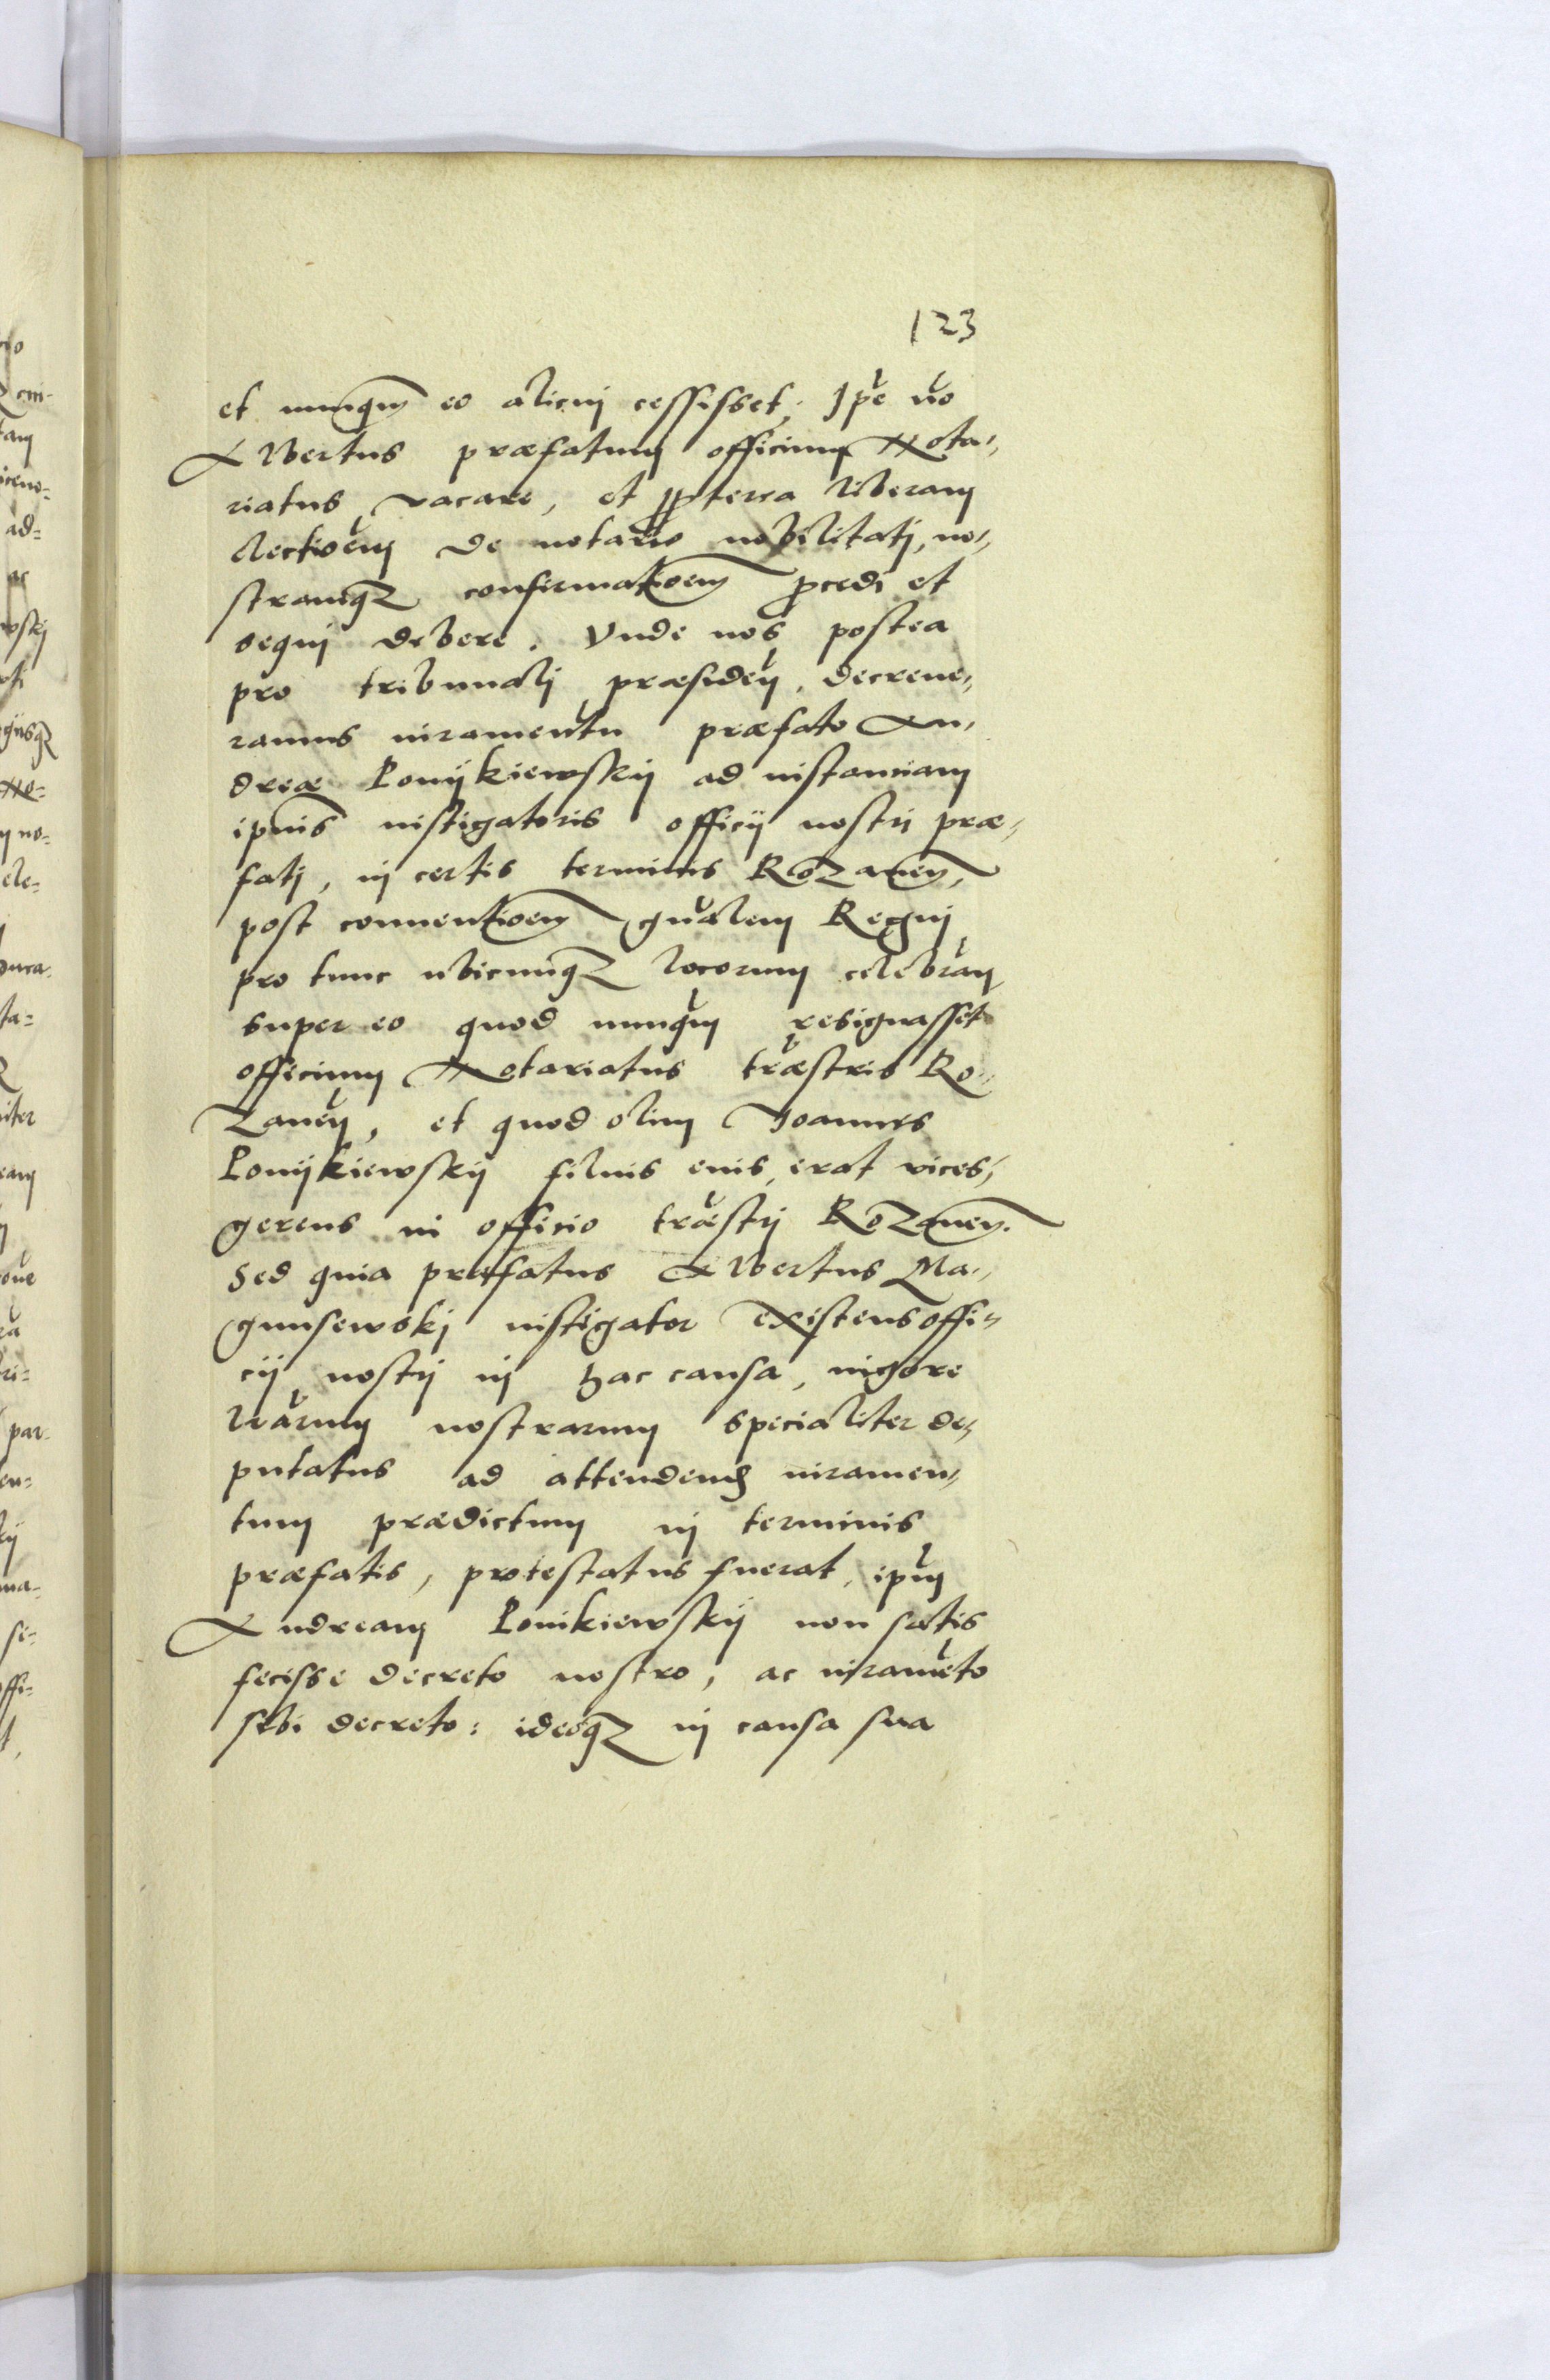 123
et nunq̃m eo alicuj cessisset, Jpe vo
Albertus præfatum officium Nota„
riatus vacare, et ppterea liberam
electioem de notario nobilitatj, no„
stramq3 confirmatioem pcedi et
sequj debere. Vnde nos postea
pro tribunalj præsiden, decreue„
ramus iuramentu præfato An„
dreæ Ponijkiewskij ad instantiam
ipius instigatoris officij nostri præ„
fatj, in certis terminis Rozanen,
post conuentioem gnalem Regnj
pro tunc ubicunq3 locorum celebran
super eo quod nunqm resignasset
officium Notariatus træstris Ro„
zanen, et quod olim Joannes
Ponijkiewskij filius eius, erat vices„
gerens in officio træstrj Rozanen.
Sed quia præfatus Albertus Ma„
gnusewskj instigator existens offi„
cij nostrj in hac causa, uigore
lrarum nostrarum specialiter de„
putatus ad attendend iuramen„
tum prædictum in terminis
præfatis, protestatus fuerat, ipm
Andream Ponikiewskij non satis
fecisse decreto nostro, ac iurameto
sibi decreto: ideoq3 in causa sua